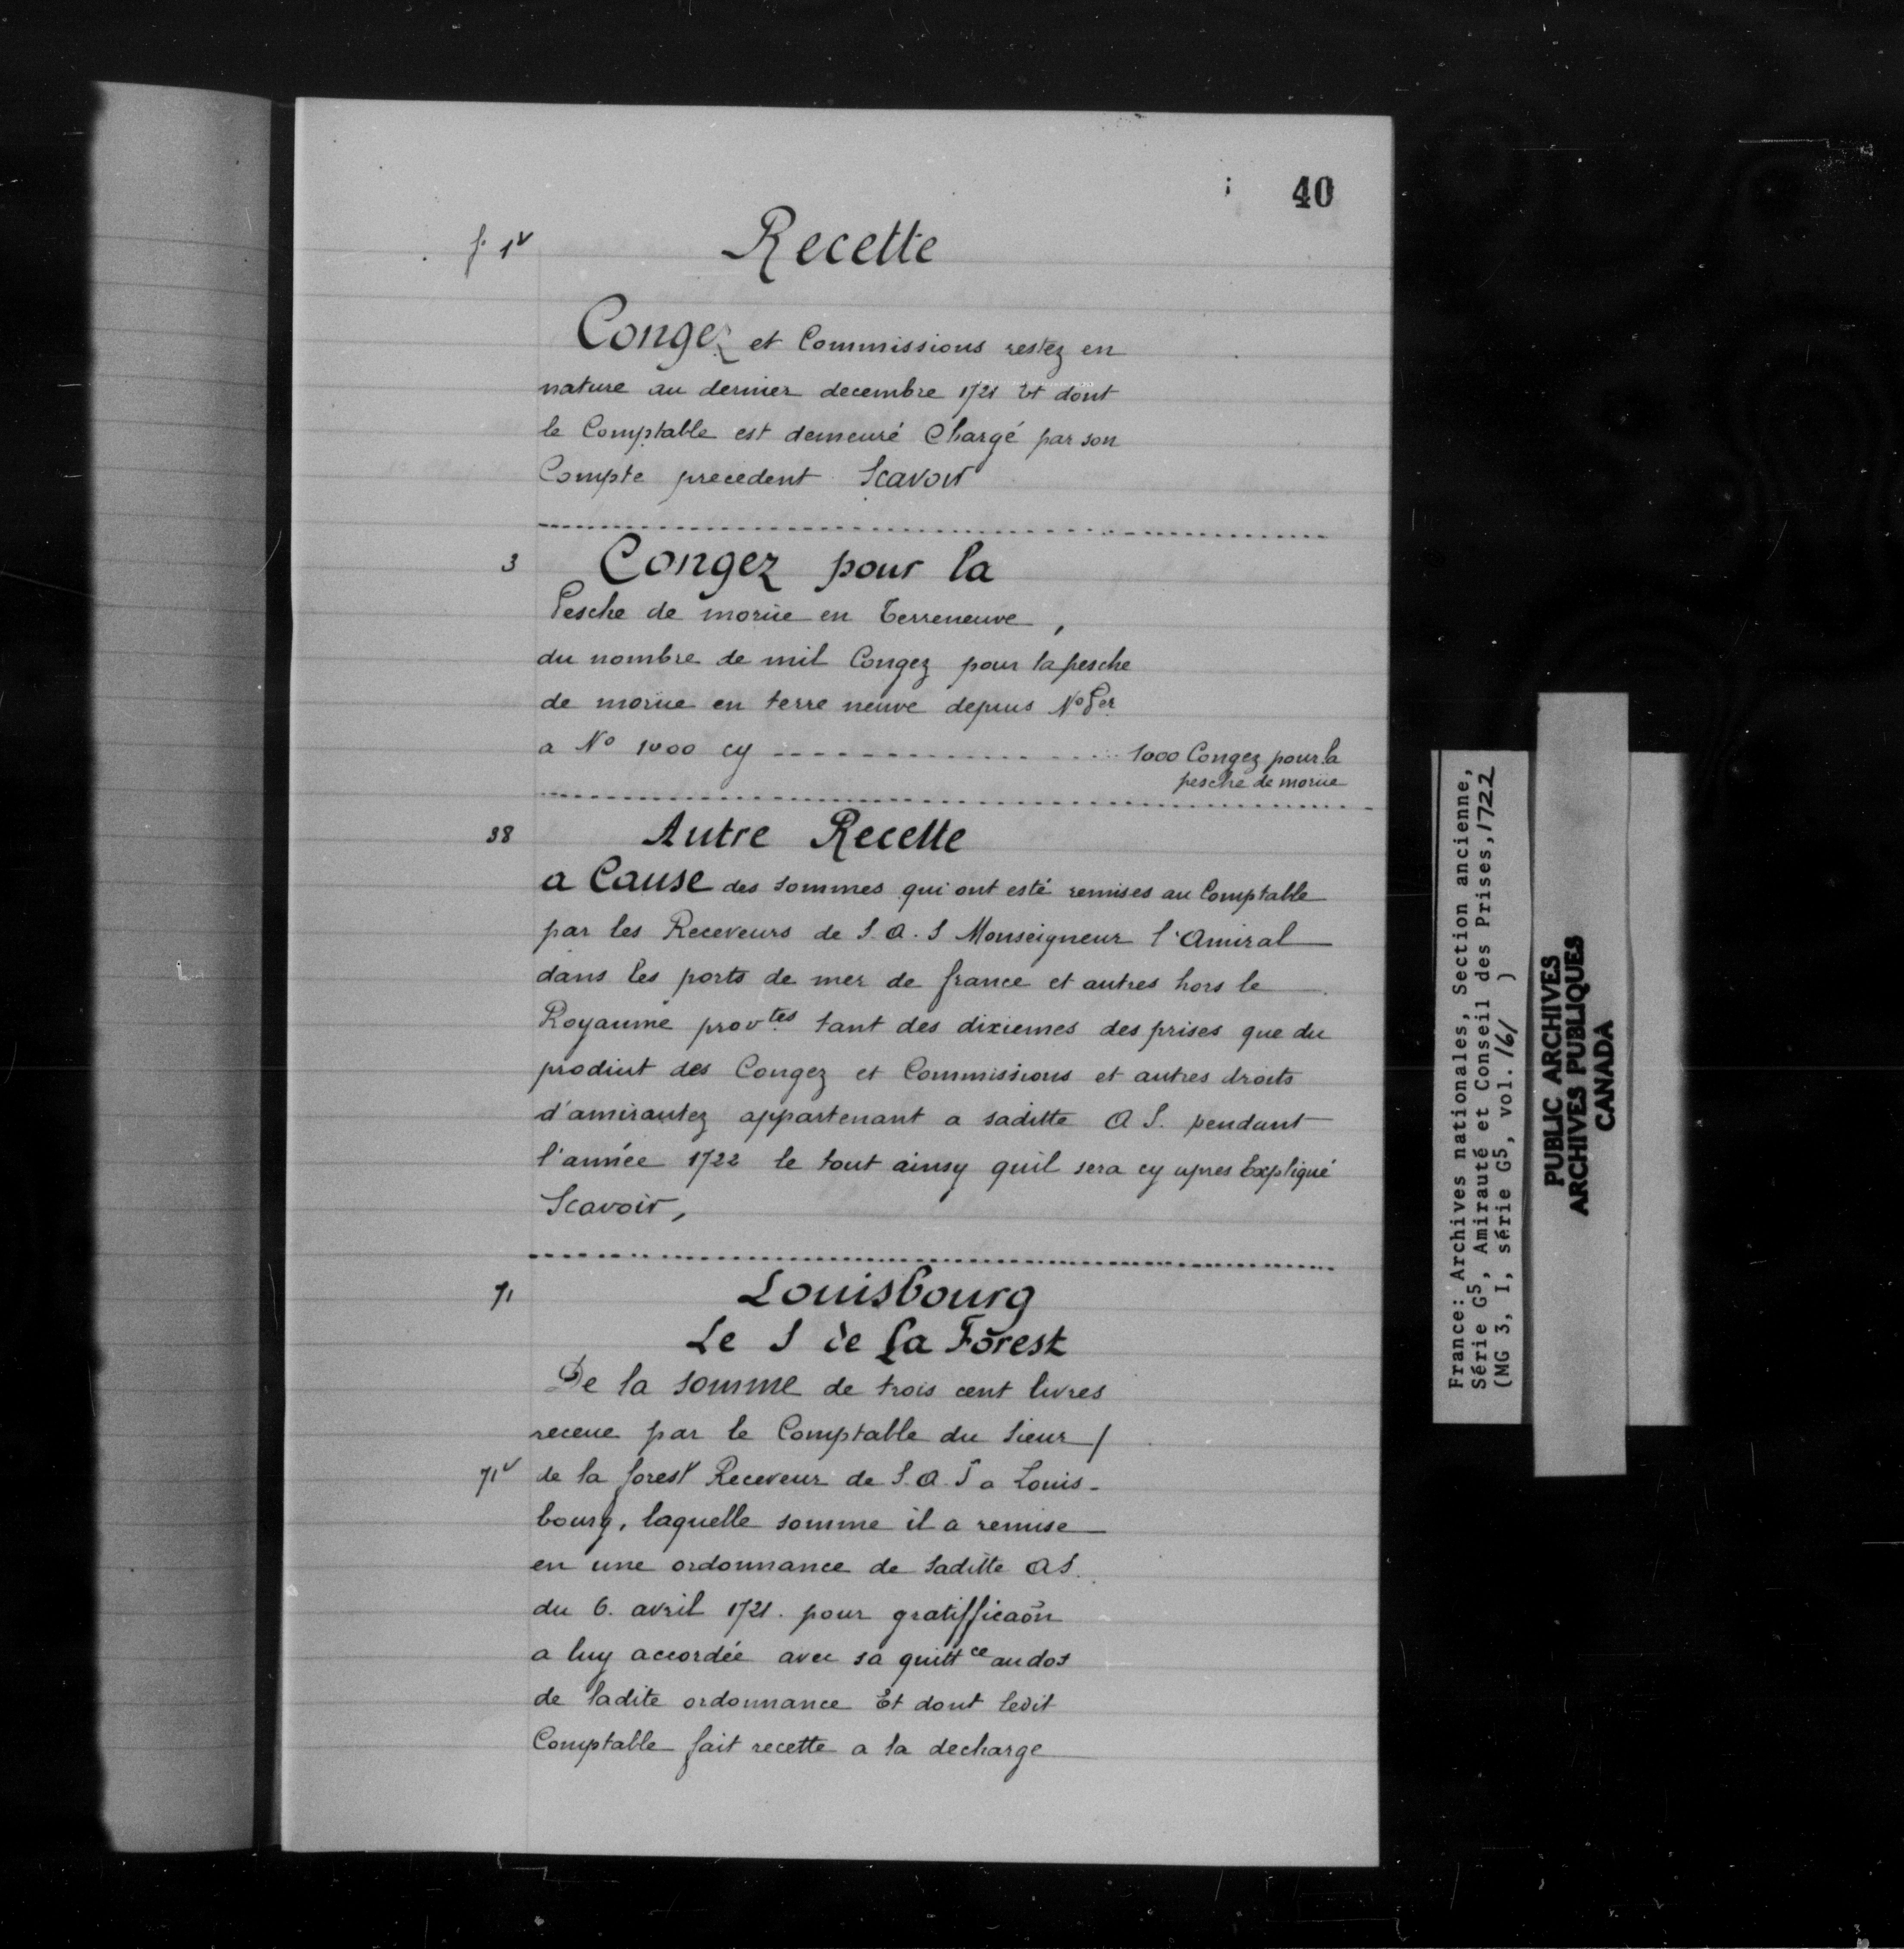 40
f. 1v
Recette
Congez et Commissions restez en
nature au dernier decembre 1721 Et dont
le Comptable est demeuré Chargé par son
Compte precedent Scavoir
3
Congez pour la
Pesche de moriie en Terreneuve,
du nombre de mil Congez pour la pesche
de moriie en terre neuve depuis No Per
a No 1000 cy 1000 Congez pour la
pesche de moriie
38
Autre Recette
a Cause des sommes qui ont esté remises au Comptable
par les Receveurs de S. A. S Monseigneur l'Amiral
dans les ports de mer de france et autres hors le
Royaume provtes tant des dixiemes des prises que du
produit des Congez et Commissions et autres droits
d'amirautez appartenant a saditte A S. pendant
l'année 1722 le tout ainsy quil sera cy apres Expliqué
Scavoir,
71
Louisbourg
Le S de La Forest
De la somme de trois cent livres
receue par le Comptable du Sieur /
71v de la forest Receveur de S. A. S a Louis-
bourg, laquelle somme il a remise
en une ordonnance de Saditte AS.
du 6. avril 1721. pour gratifficaõn
a luy accordée avec sa quittce au dos
de ladite ordonnance Et dont ledit
Comptable fait recette a la decharge
France: Archives nationales, Section ancienne,
Série G5, Amirauté et Conseil des Prises, 1722
(MG 3, I, série G5, vol. 161 )
PUBLIC ARCHIVES
ARCHIVES PUBLIQUES
CANADA